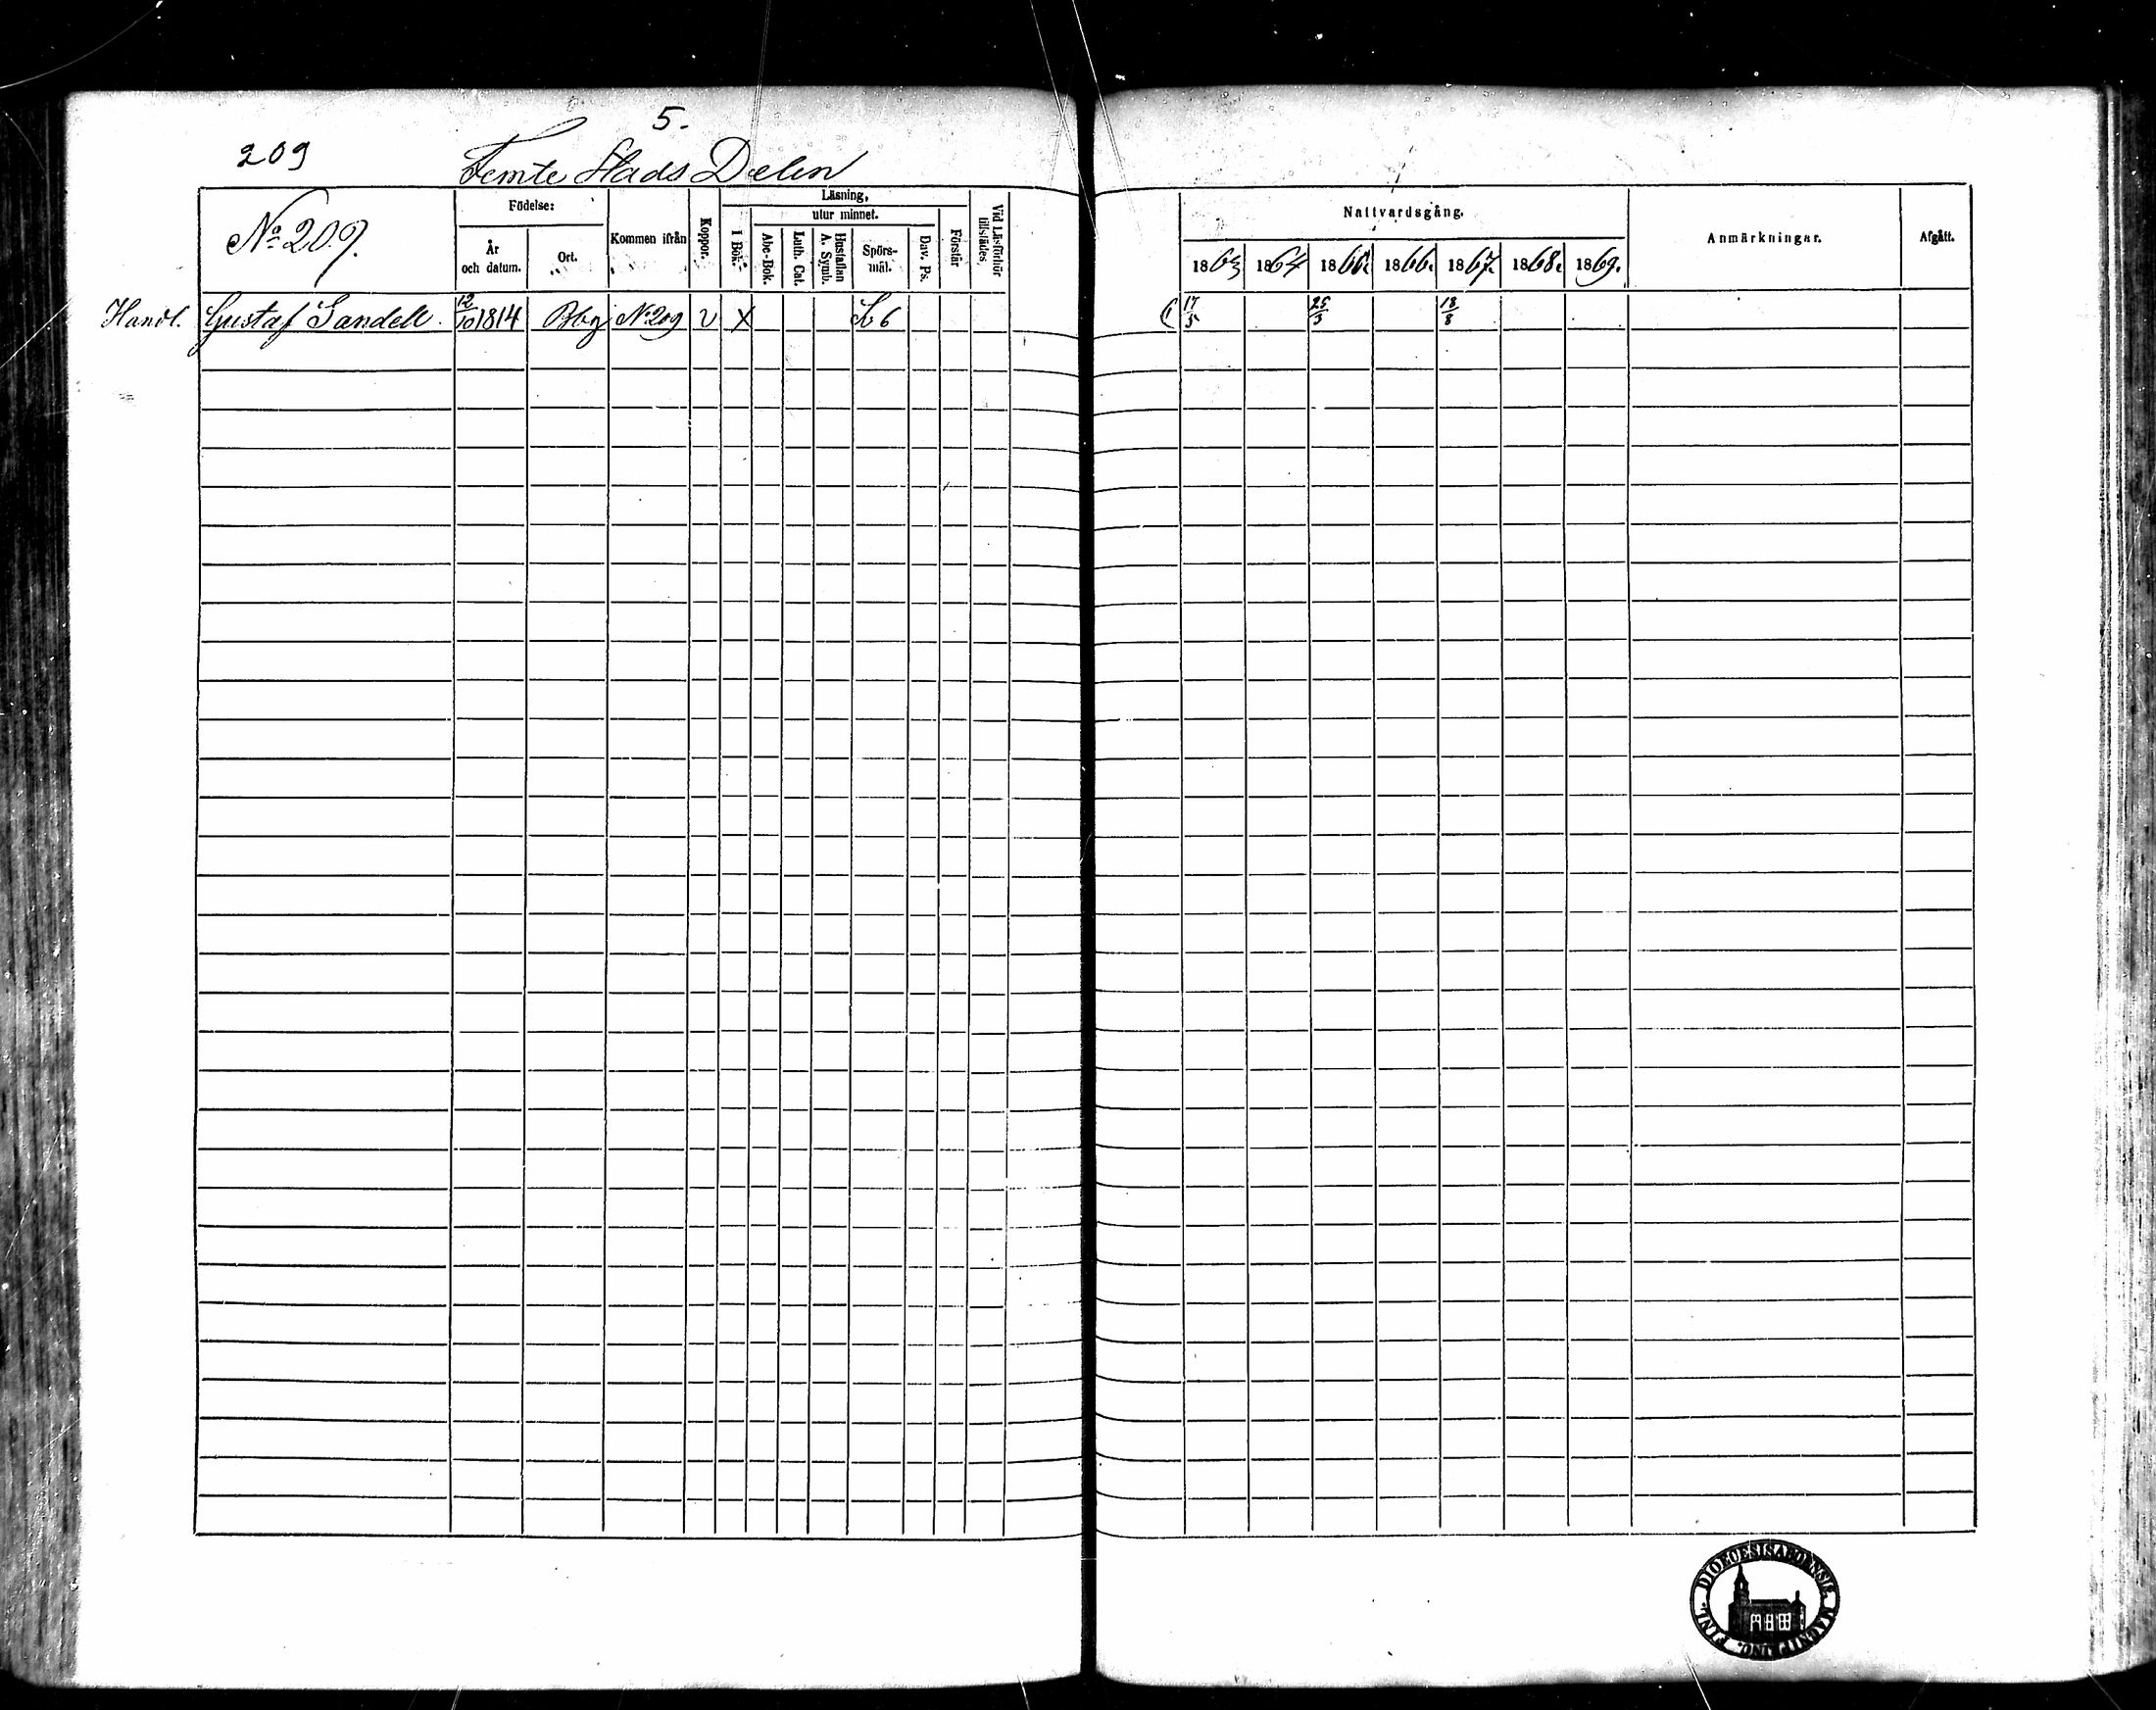 5.
209
Femte Stads Delen
No 209.
Födelse:
År och datum.
Ort.
Kommen ifrån
Koppor.
Läsning,
utur minnet.
I Bok.
Abc-Bok.
Luth. Cat.
Hustaflan A. Symb.
Spörs-mål.
Dav. Ps.
Förstår
Vid Läsförhör tillstädes
Nattvardsgång.
1863 1864 1865. 1866. 1867. 1868. 1869.
Anmärkningar.
Afgått.
Handl. Gustaf Sandell. 12/10 1814 Bbg No 209 v X 6 17/5 25/3 18/8
DIOECESIS ABOENSIS MAGNI DUC. FINL.